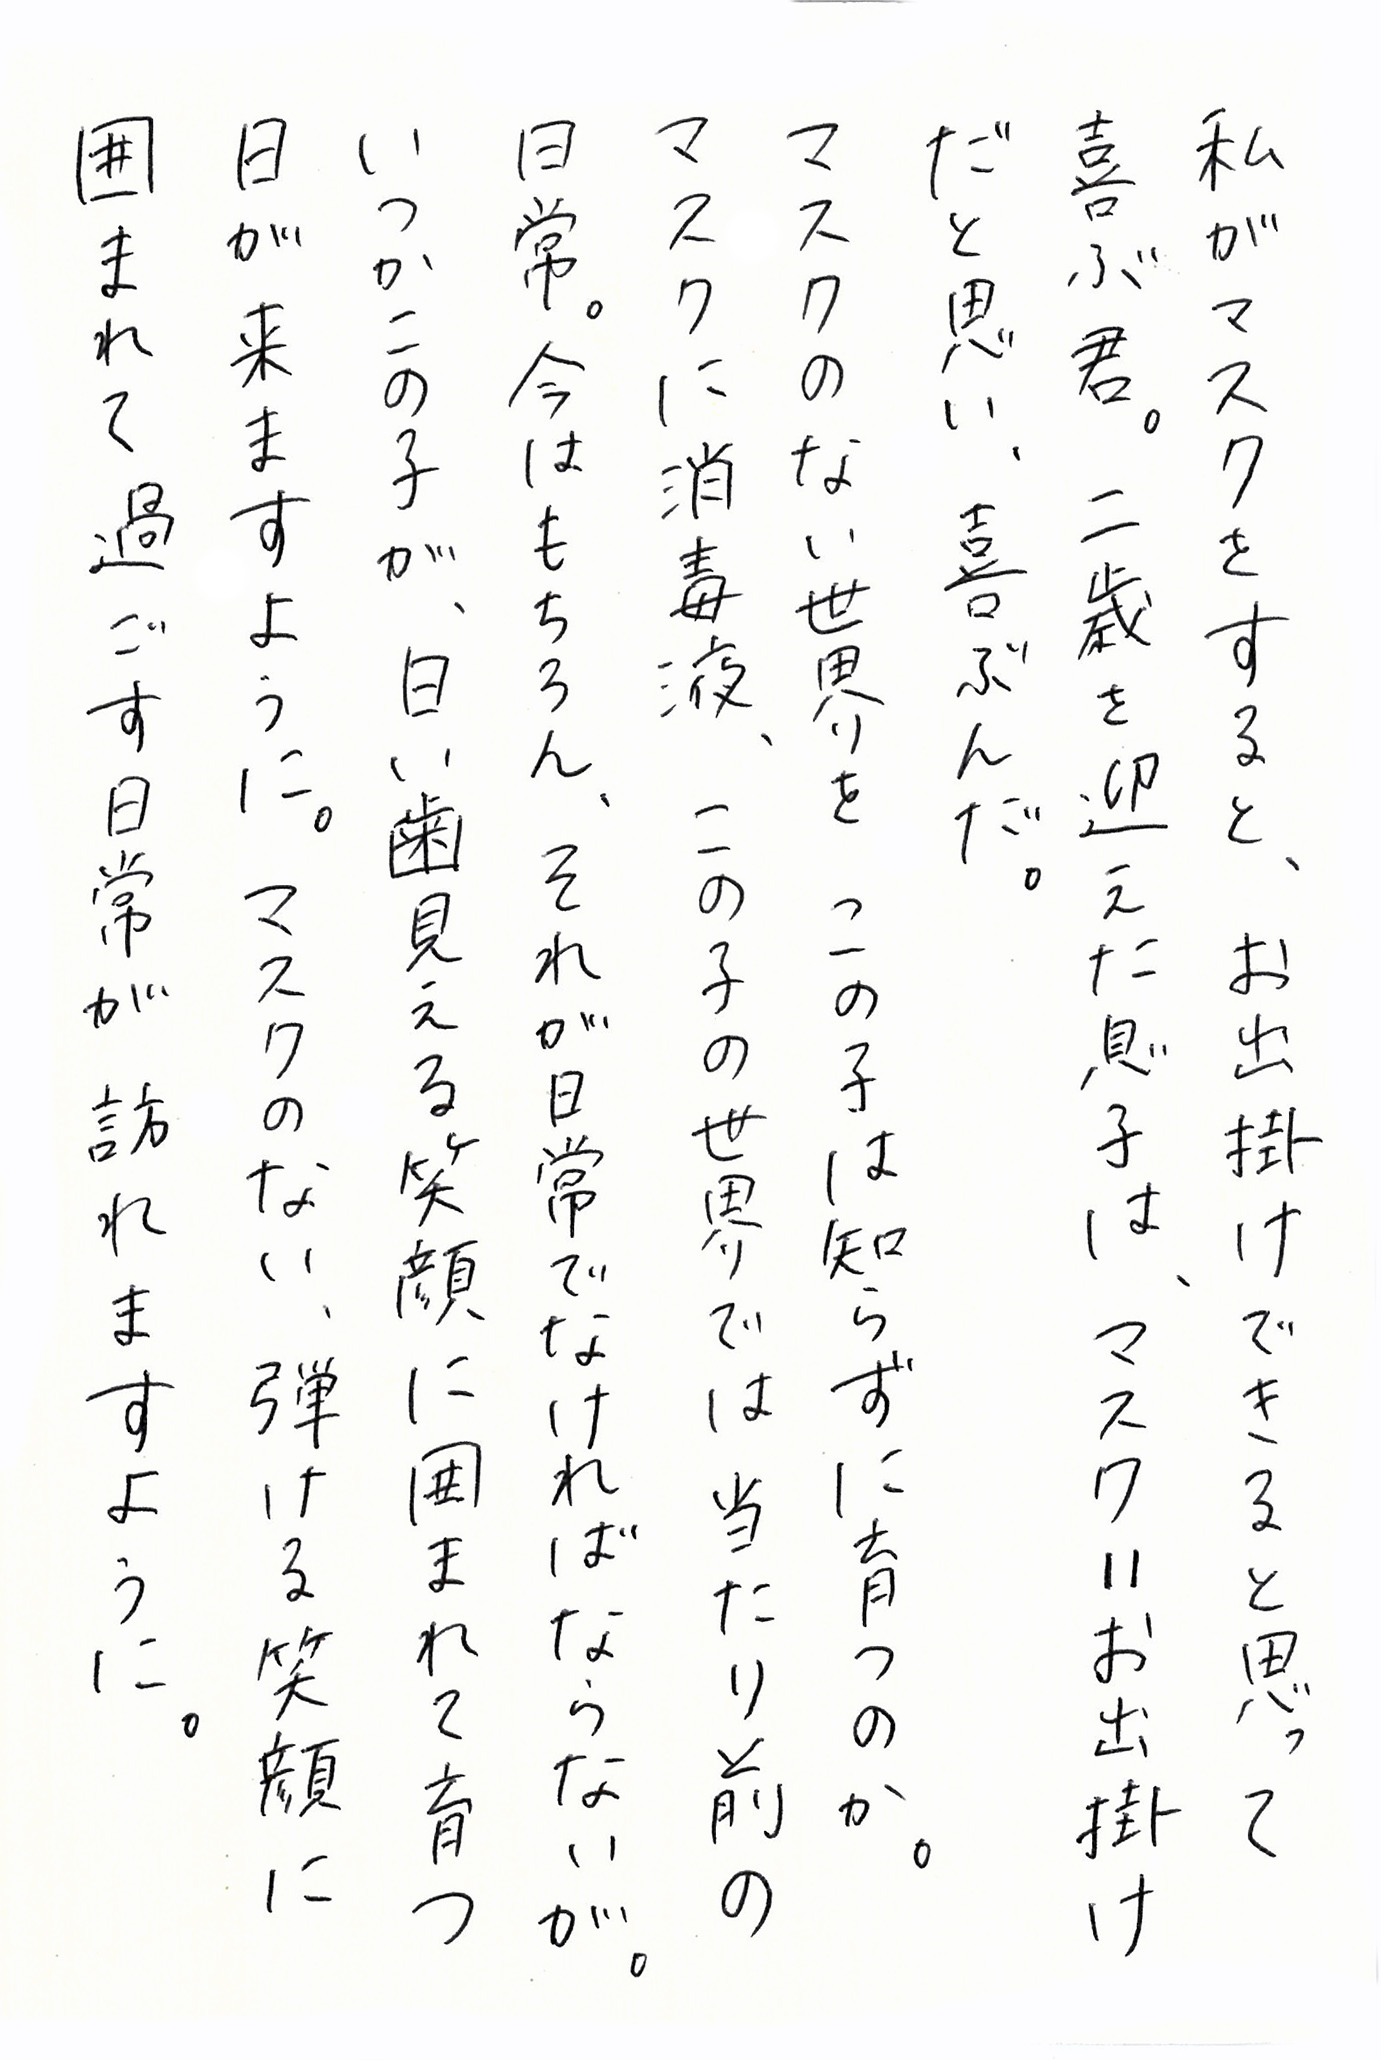 私がマスクをすると、お出掛けできると思って
喜ぶ君。二歳を迎えた息子は、マスク＝お出掛け
だと思い、喜ぶんだ。
マスクのない世界を この子は知らずに育つのか。
マスクに消毒液、この子の世界では当たり前の
日常。今はもちろん、それが日常でなければならないが。
いつかこの子が、白い歯見える笑顔に囲まれて育つ
日が来ますように。マスクのない、弾ける笑顔に
囲まれて過ごす日常が訪れますように。